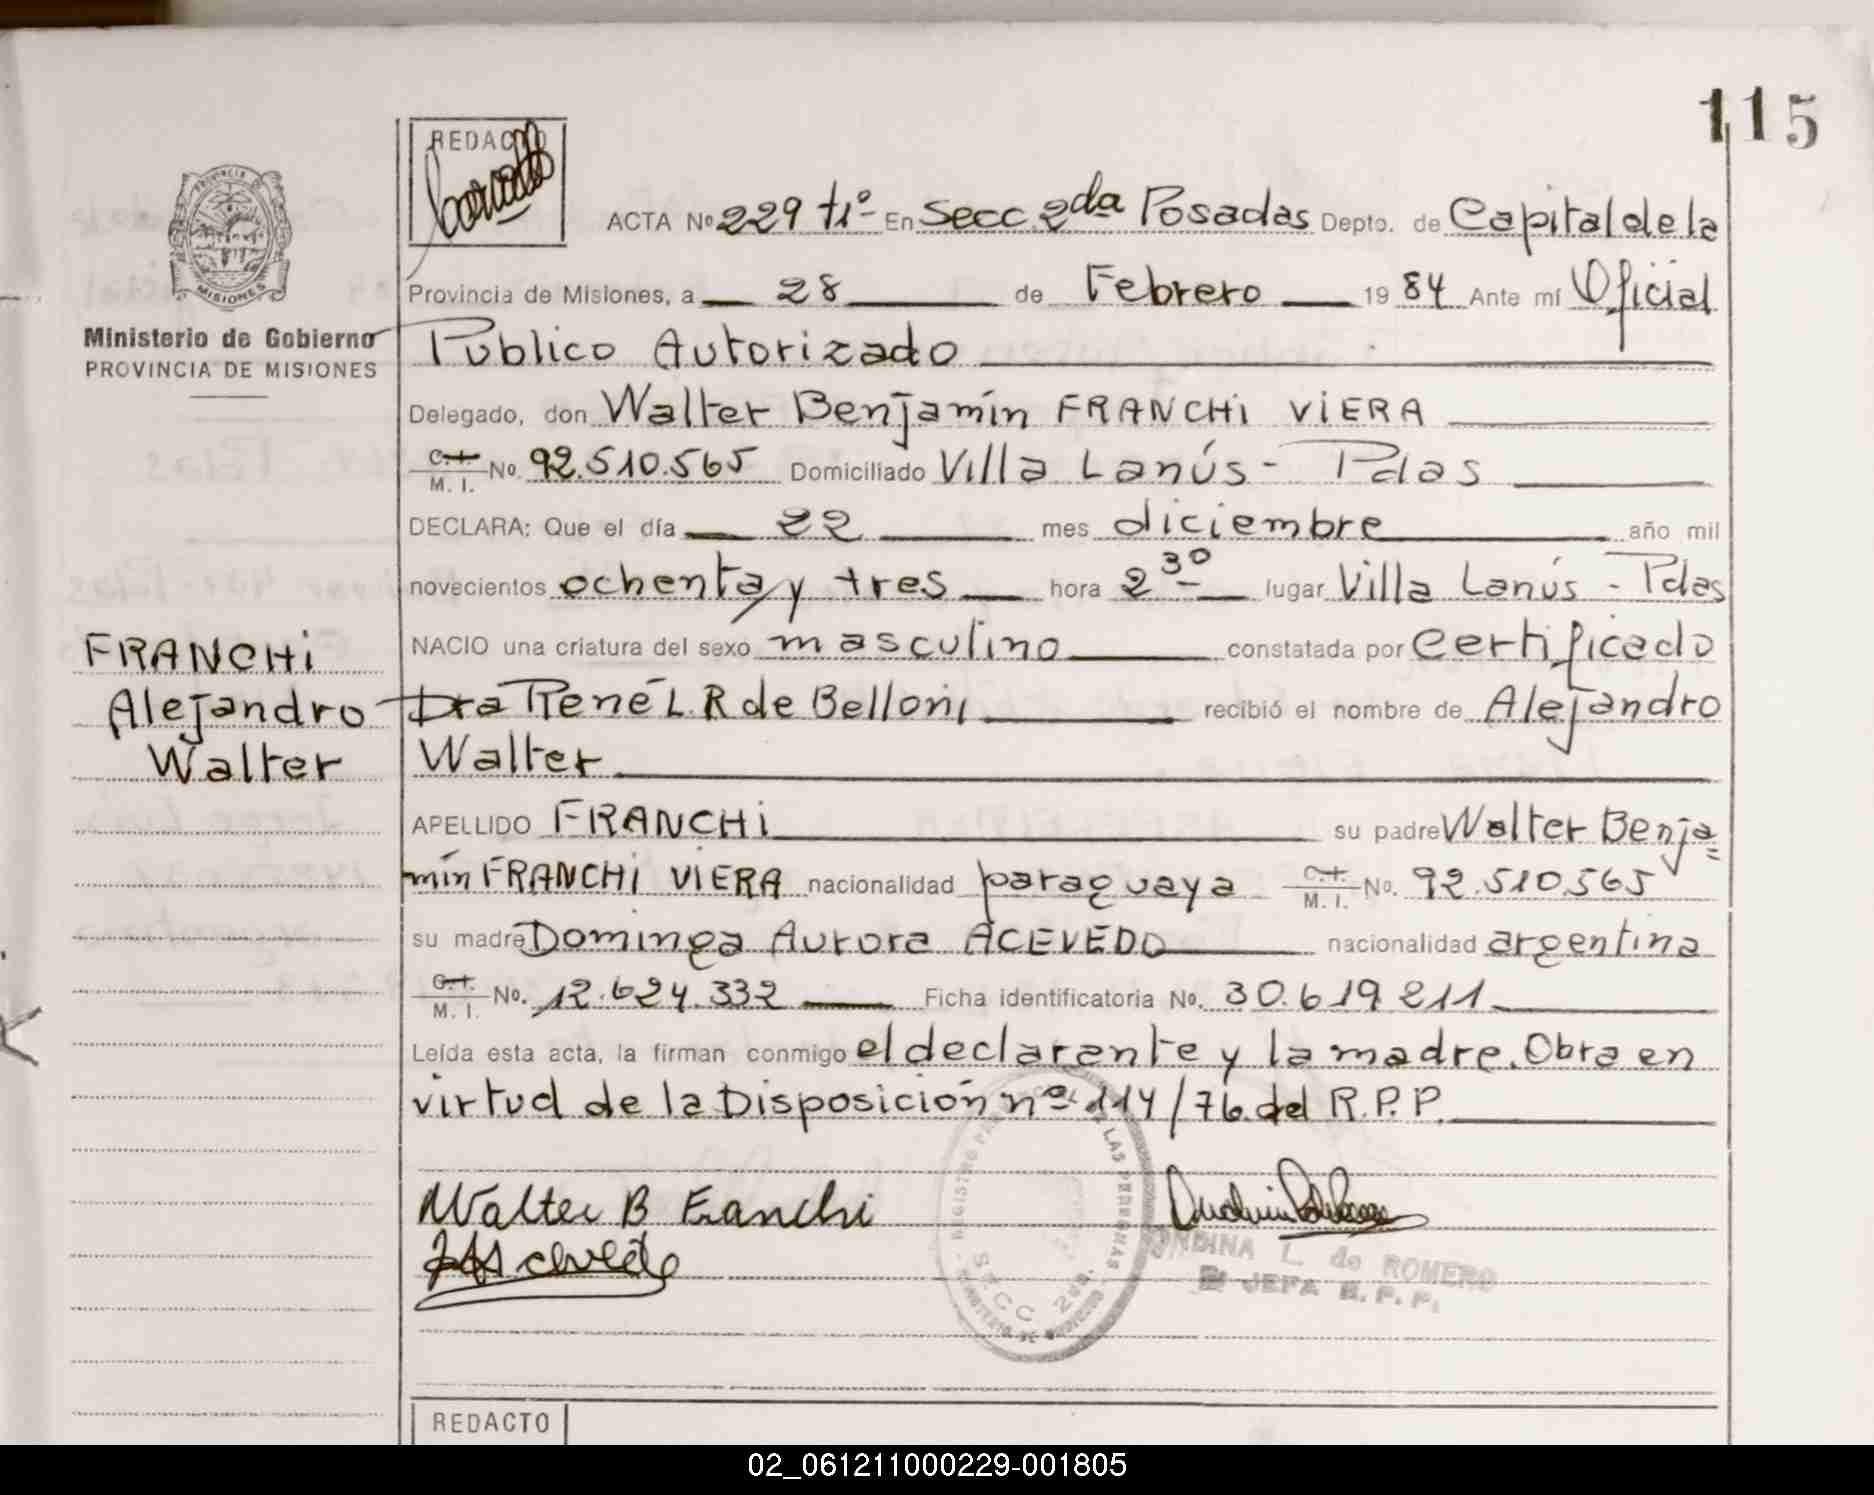 115
REDACTO
ACTA Nº 229 tº En Secc. 2da Posadas Depto. de Capital de la
Provincia de Misiones, a 28 de Febrero 1984 Ante mí Oficial
PROVINCIA
MISIONES
Ministerio de Gobierno
PROVINCIA DE MISIONES
Público Autorizado
Delegado, don Walter Benjamín FRANCHi ViERA
C.I. M. I. No. 92.510.565 Domiciliado Villa Lanús - Pdas
DECLARA: Que el día 22 mes diciembre año mil
novecientos ochenta y tres hora 2 30 lugar Villa Lanús - Pdas
NACIO una criatura del sexo masculino constatada por Certificado
FRANCHi
Alejandro
Walter
Dra René L. R de Belloni recibió el nombre de Alejandro
Walter
APELLIDO FRANCHi su padre Walter Benja=
mín FRANCHi ViERA nacionalidad paraguaya C.I. M. I. No. 92.510.565
su madre Dominga Aurora ACEVEDO nacionalidad argentina
C.I. M. I. No. 12.624.332 Ficha identificatoria No. 30.619.211
Leída esta acta, la firman conmigo el declarante y la madre. Obra en
virtud de la Disposición nº 114/76 del R.P.P.
Walter B Franchi
REGISTRO LAS PERSONAS
SECC 2da.
ONDINA L. de ROMERO
JEFA R. P. P.
REDACTO
02_061211000229-001805